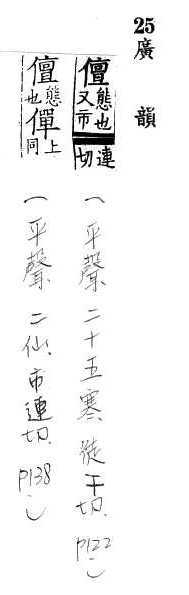 25 廣韻
儃態也又市連切 (平聲 二十五寒, 徒干切, P122)
儃態也僤上同 (平聲 二仙, 市連切, P138)